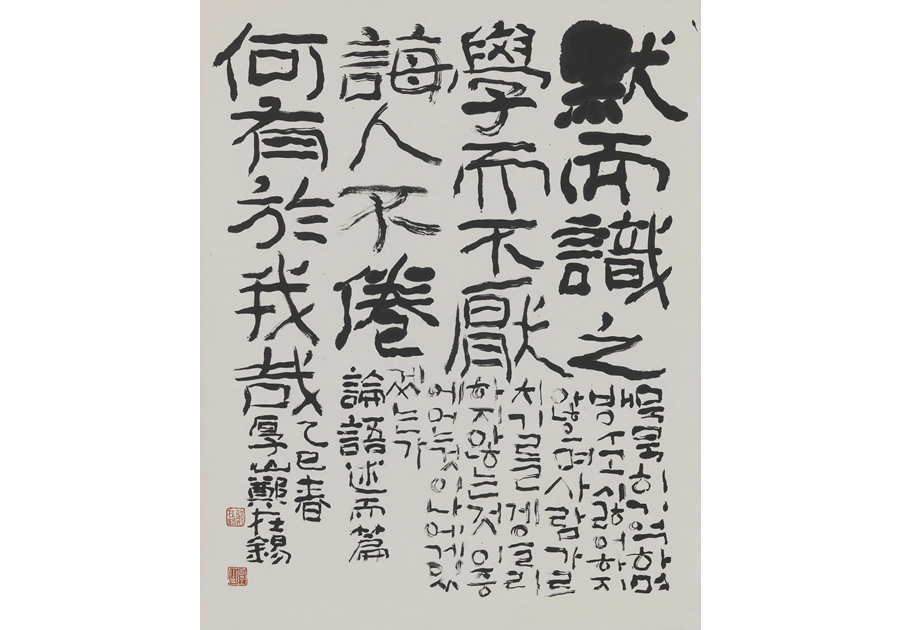 默而識之
學而不厭
誨人不倦
何有於我哉
묵묵히기억하며
싫어하지
않으며사람가르
치기를게을리
하지않는것이중
에어느것이나에게있
겠는가
論語述而篇
乙巳春
厚山鄭在錫